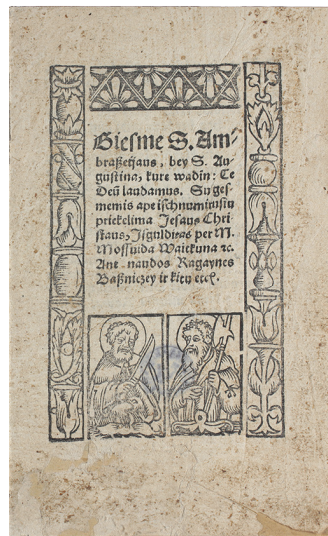 Giesme S. Am⸗
braßeijaus, bey S. Au⸗
gustina, kure wadin: Te
Deũ laudamus. Su ges⸗
memis ape ischnumirusiu
prikelima Jesaus Chri
staus, Jsgulditas per M.
Mossuida Waitkuna ꝛc.
Ant naudos Ragaynes
Baßniczey ir kitų etcꝫ.